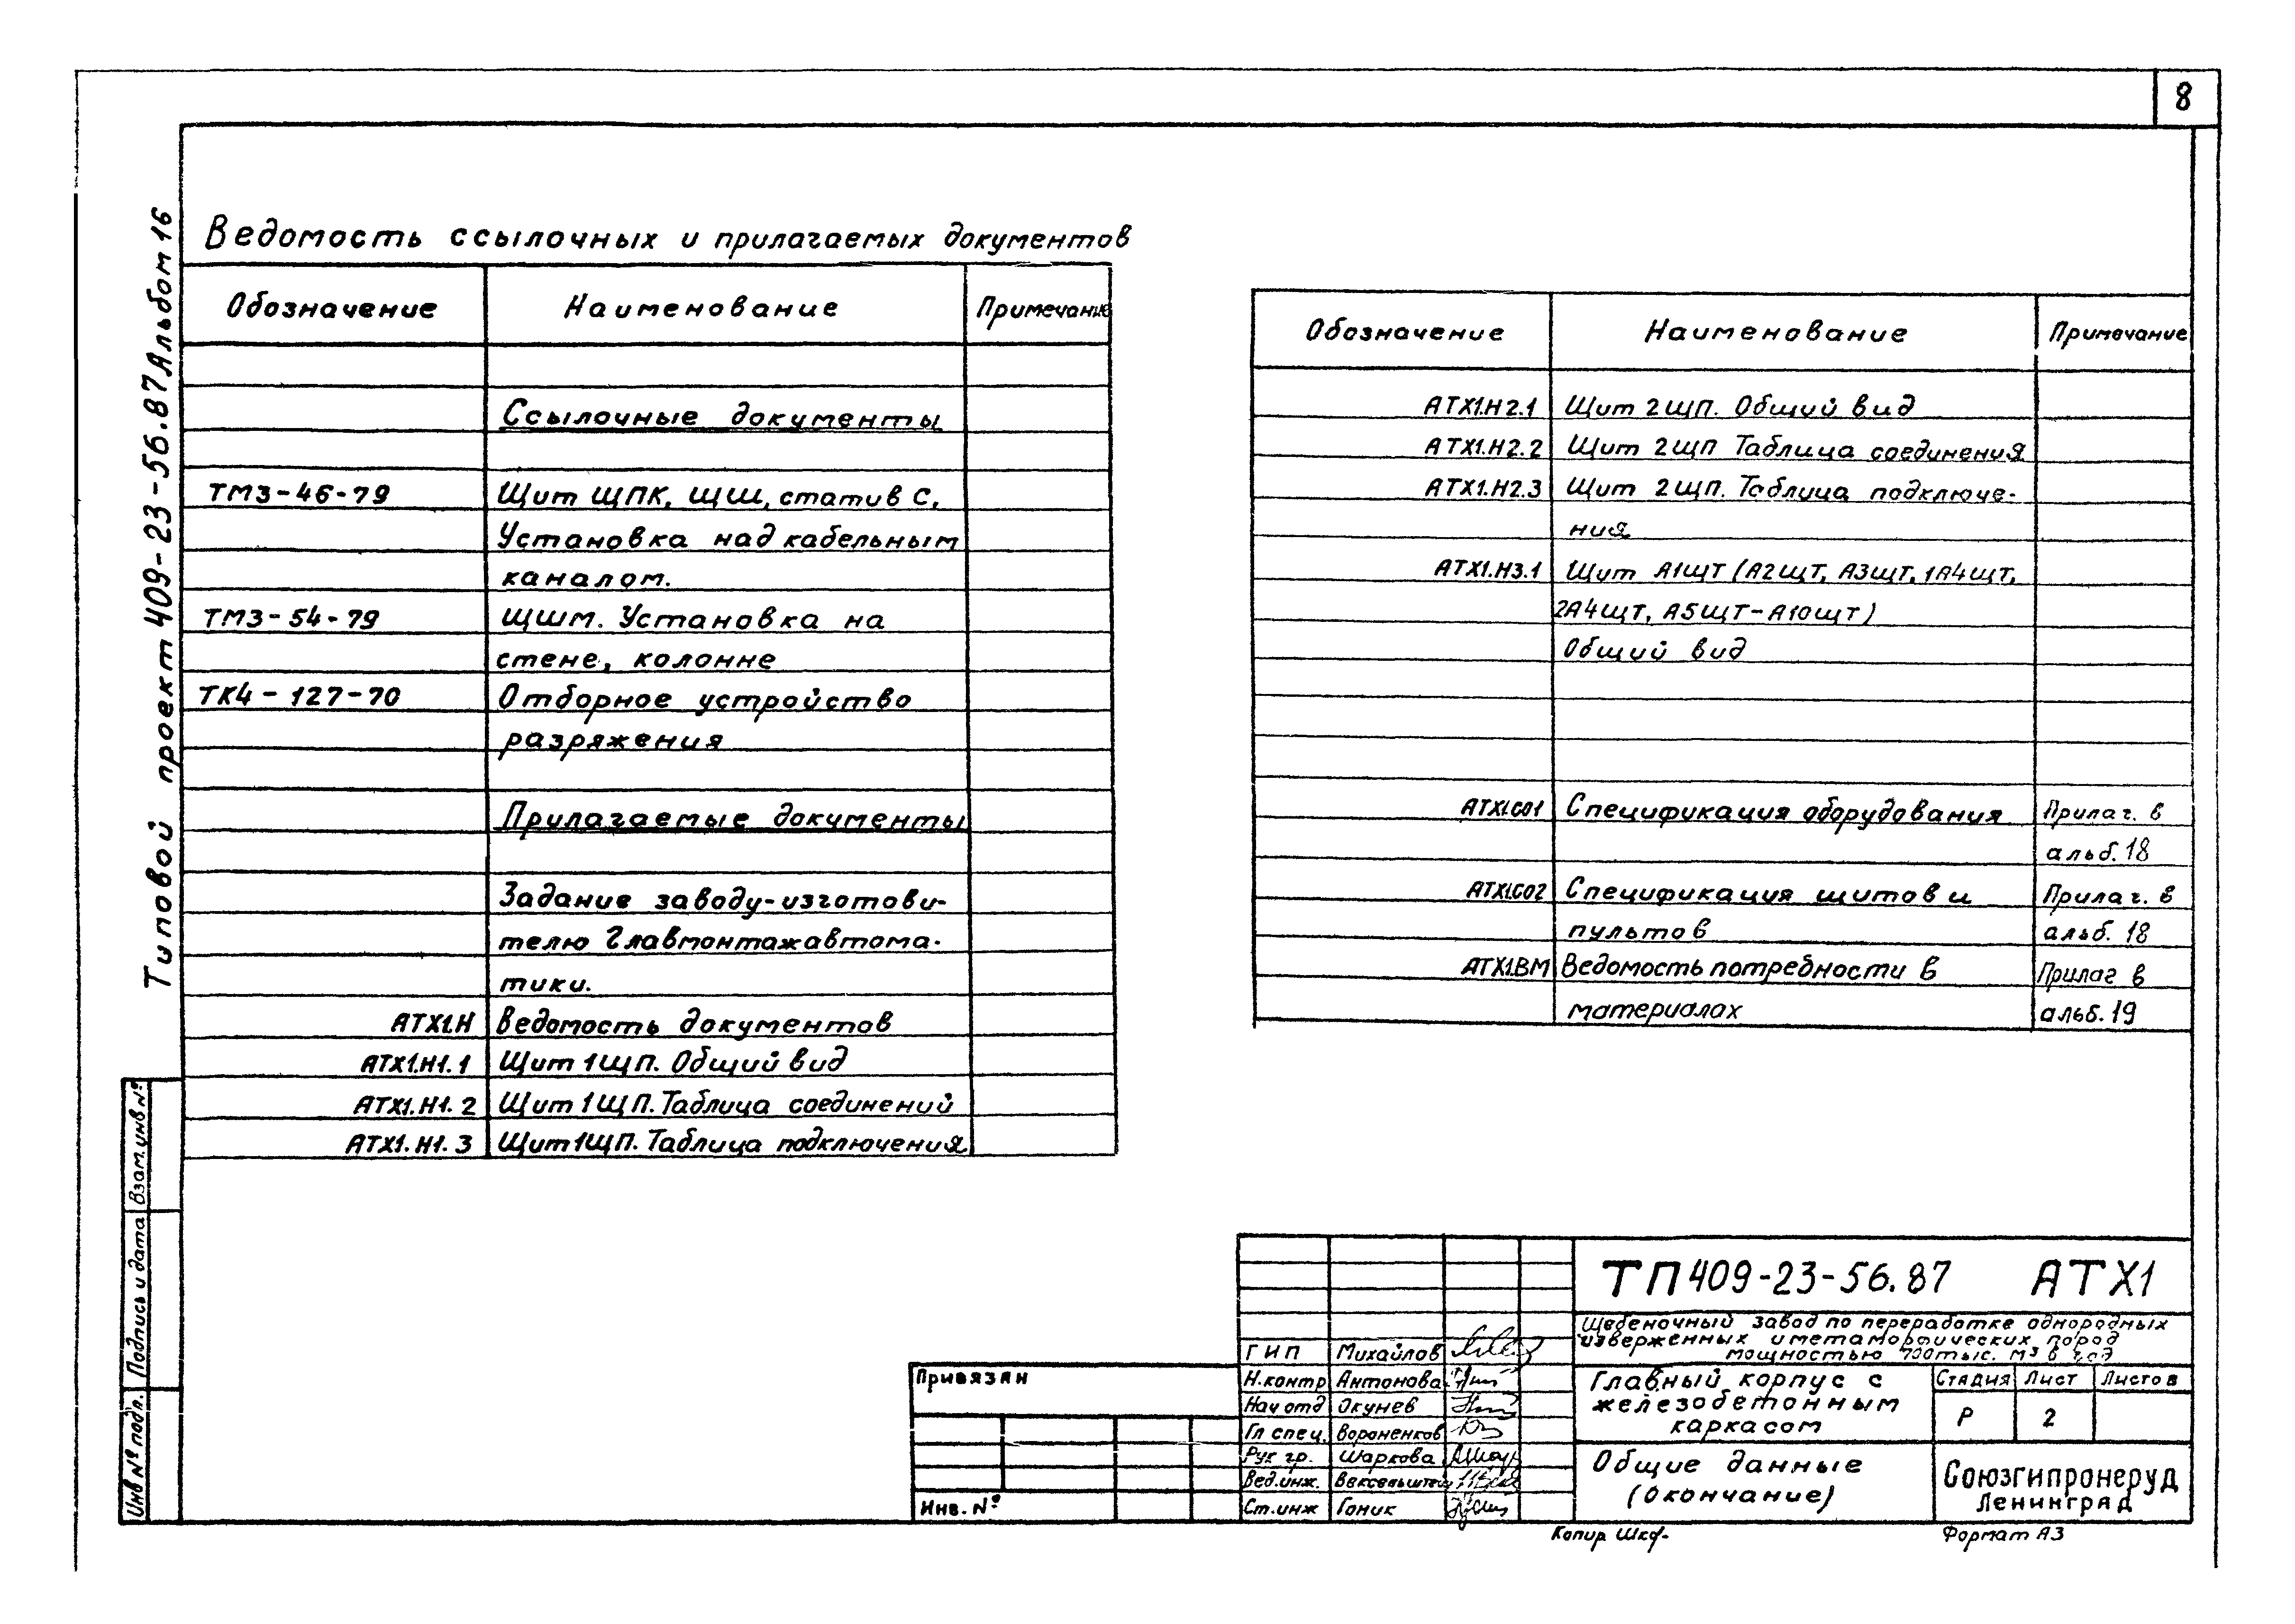 8
Типовой проект 409-23-56.87 Альбом 16
Ведомость ссылочных и прилагаемых документов
Обозначение Наименование Примечание
Ссылочные документы
ТМ3-46-79 Щит ЩПК, ЩШ, статив С,
Установка над кабельным
каналом.
ТМ3-54-79 ЩШМ. Установка на
стене, колонне
ТК4-127-70 Отборное устройство
разряжения
Прилагаемые документы
Задание заводу-изготови-
телю Главмонтажавтома-
тики.
АТХ1.Н Ведомость документов
АТХ1.Н1.1 Щит 1ЩП. Общий вид
АТХ1.Н1.2 Щит 1ЩП. Таблица соединений
АТХ1.Н1.3 Щит 1ЩП. Таблица подключения
Обозначение Наименование Примечание
АТХ1.Н2.1 Щит 2ЩП. Общий вид
АТХ1.Н2.2 Щит 2ЩП Таблица соединения
АТХ1.Н2.3 Щит 2ЩП. Таблица подключе-
ния
АТХ1.Н3.1 Щит А1ЩТ (А2ЩТ, А3ЩТ, 1А4ЩТ,
2А4ЩТ, А5ЩТ-А10ЩТ)
Общий вид
АТХ1.СО1 Спецификация оборудования Прилаг. в
альб. 18
АТХ1.СО2 Спецификация щитов и Прилаг. в
пультов альб. 18
АТХ1.ВМ Ведомость потребности в Прилаг в
материалах альб. 19
Взам. инв №
Подпись и дата
Инв № подл.
Привязан
Инв. №
ГИП Михайлов
Н.контр Антонова
Нач отд Окунев
Гл спец. Вороненков
Рук гр. Шаркова
Вед.инж.
Ст.инж Гоник
ТП 409-23-56.87 АТХ1
Щебеночный завод по переработке однородных
изверженных и метаморфических пород
мощностью 700 тыс. м3 в год
Главный корпус с
железобетонным
каркасом
Стадия Лист Листов
Р 2
Общие данные
(окончание)
Союзгипронеруд
Ленинград
Копир Шкф-
Формат А3